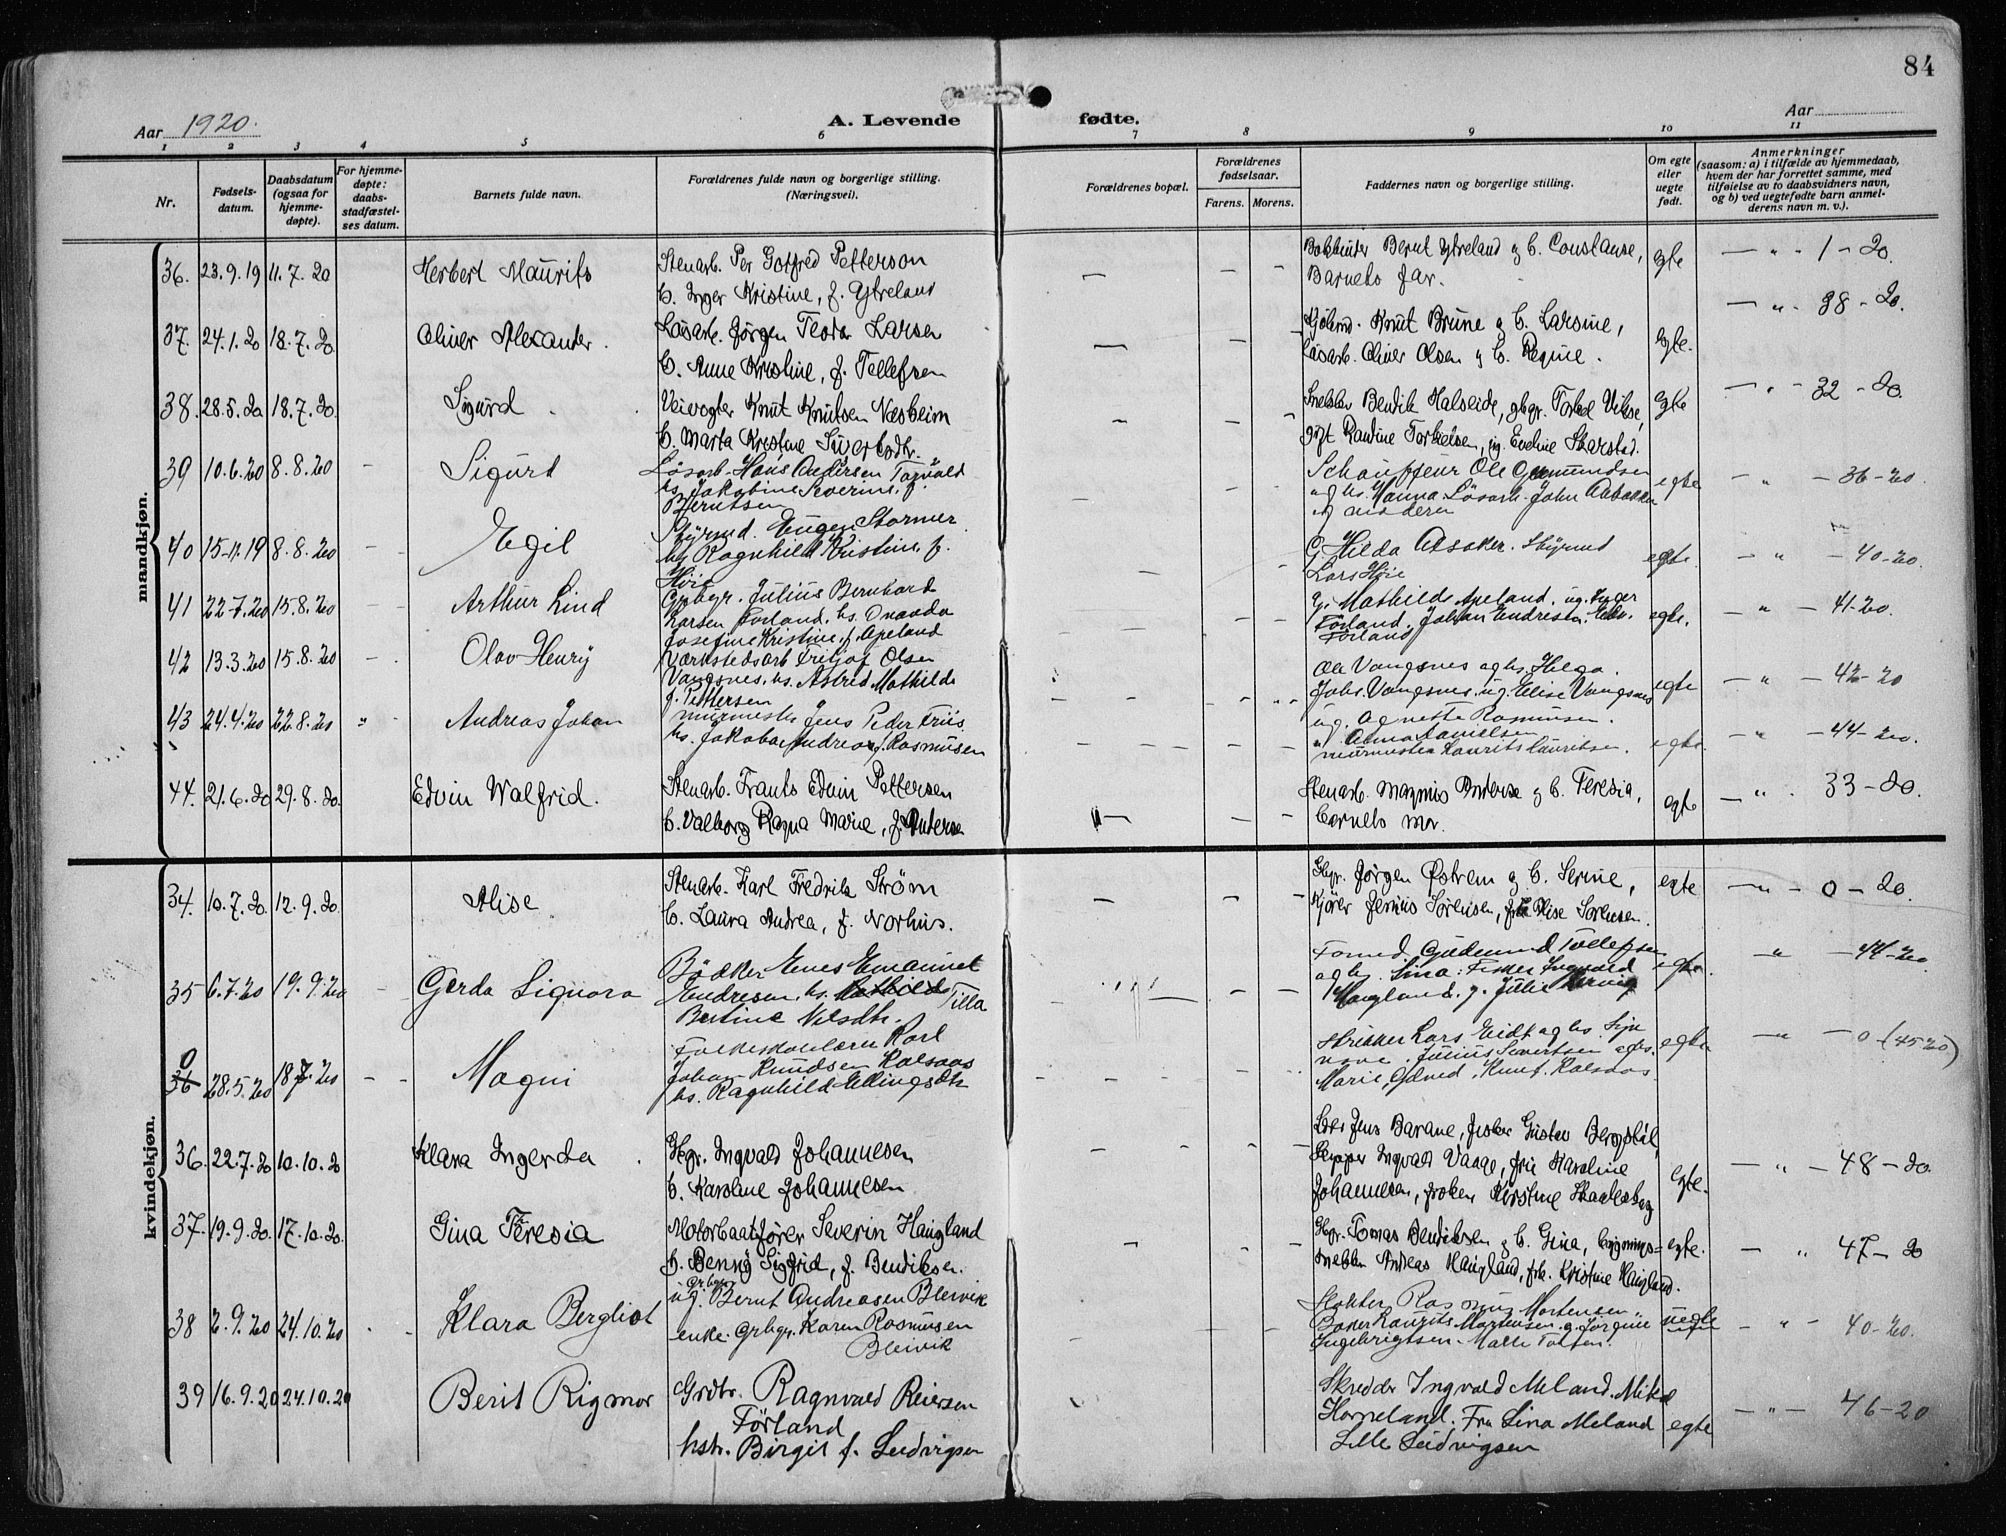 84
Aar 1920.
A. Levende fødte.
Aar
1 2 3 4 5 6 7 8 9 10 11
Nr.
Fødsels-
datum.
Daabsdatum
(ogsaa for
hjemme-
døpte).
For hjemme-
døpte:
daabs-
stadfæstel-
ses datum.
Barnets fulde navn.
Forældrenes fulde navn og borgerlige stilling.
(Næringsvei).
Forældrenes bopæl.
Forældrenes
fødselsaar.
Farens. Morens.
Faddernes navn og borgerlige stilling.
Om egte
eller
uegte
født.
Anmerkninger
(saasom: a) i tilfælde av hjemmedaab,
hvem der har forrettet samme, med
tilføielse av to daabsvidners navn,
og b) ved uegtefødte barn anmel-
derens navn m. v.).
mandkjøn.
36. 23.9.19 11.7.20 Herbert Maurits
Stenarb. Per Gotfred Petterson
H. Inger Kristine, f. Ytreland
Bokbinder Bernt Ytreland og H. Constanse,
Barnets far.
egte
— " - 1 - 20.
37. 24.1.20 18.7.20 Oliver Alexander.
Løsarb. Jørgen Teodor Larsen
H. Anne Kristine, f. Tellefsen
Knut Brune og H. Larsine,
Løsarb. Oliver Olsen og H. Regine.
egte.
— " - 38 - 20.
38. 28.5.20 18.7.20 Sigurd
Veivogter Knut Knutsen Næsheim
H. Marta Kristine Sivertsdtr.
Bendik Halseide, gbgr. Torkel Vikse,
Randine Torkelsen, ug. Eveline Skarstad.
egte
— " - 32 - 20.
39 10.6.20 8.8.20 - Sigurd
Løsarb. Hans Andersen Tagvald
hs. Jakobine Severine f.
Berntsen
Schauffeur Ole Gismundsen
og hs. Hanna Løsarb. John
og moderen
egte
- " - 36-20.
40 15.11.19 8.8.20 Egil
Styrmd. Eugen Stormer
hs Ragnhild Kristine f.
Høie
G. Hilda Styrmd
Lars Høie
egte.
- " - 40-20.
41 22.7.20 15.8.20 Arthur Lind
Grbgr. Julius Bernhard
Larsen Førland, hs.
Josefine Kristine f. Apeland
G. Mathilde Apeland. ug. Inger
Førland. Johan Endresen. Edv.
Førland
egte.
- " - 41-20.
42 13.3.20 15.8.20 - Olav Henry
Værkstedsarb Fritjof Olsen
Vangsnes. hs. Astrid Mathilde
f. Pettersen
Ole Vangsnes og hs. Helga.
Johs. Vangsnes. ug. Elise Vangsnes
egte
- " - 42-20
43 24.4.20 22.8.20 " Andreas Johan
murmester Jens Peder Friis
hs. Jakoba Andrea f. Rasmusen
ug. Agnette Rasmusen.
murmester Laurits Lauritsen.
egte
- " - 44-20.
44. 21.6.20 29.8.20. Edvin Walfrid.
Stenarb. Frants Edvin Pettersen
H. Valborg Ragna Marie, f.
Stenarb. Magnus og H. Teresia,
Barnets mor.
egte
— " - 33-20.
kvindekjøn.
34. 10.7.20. 12.9.20. Alise
Stenarb. Karl Fredrik Strøm
H. Laura Andrea, f. Norhus.
Gbgr. Jørgen Østrem og H. Serine,
Kjører Sørensen, Alise Sørensen.
egte
— " - 0 - 20.
35 6.7.20 19.9.20 - Gerda Signora
Bødker Enes Emanuel
Endresen, hs. Tilla
Bertine Nilsdtr.
Tomd. Gudmund Tollefsen
og hs. Lina: Fisker Ingvald
Haugland. g. Julie
egte.
" - 44-20.
0
36 28.5.20 18.7.20 - - Magni
Folkeskolelærer Karl
Johan Knudsen Kalsaas
hs. Ragnhild Ellingsdtr
Skrikker Lars Eidt og hs
Julius Sivertsen
Marie, Knut. Kalsaas.
egte
" - 0 - (45 20)
36. 22.7.20 10.10.20 Klara Ingerda
Gbgr. Ingvald Johannesen
H. Karoline Johannesen
Jens Barane, Gustav Bergstøl,
Skipper Ingvald Vaage, frue Karoline
Johannesen, frøken Kirstine
egte.
— " - 48 - 20.
37. 19.9.20. 17.10.20. Gina Teresia
Motorbaatfører Severin Haugland
H. Benny Sigfrid, f. Bendiksen.
Gbgr. Tomas Bendiksen og H. Gina, bygnings=
snekker Andreas Haugland, frk. Kristine Haugland.
egte.
- " - 47 - 20
38 2.9.20 24.10.20 Klara Bergliot
grbgr
ug. Bernt Andreasen Bleivik
enke. grbgr. Karen Rasmusen
Bleivik
Slakter Rasmus Mortensen.
Baker Laurits Mortensen. g. Jorgine
Ingebrigtsen. Malli
uegte
- " - 40-20.
39 16.9.20 24.10.20 Berit Rigmor
Grdbr. Ragnvald Reiersen
Førland
hstr. Birgit f. Ludvigsen
Skredder Ingvald Meland. Mikal
Horneland. Fru Lina Meland
Lilli Ludvigsen
egte
- " - 46-20